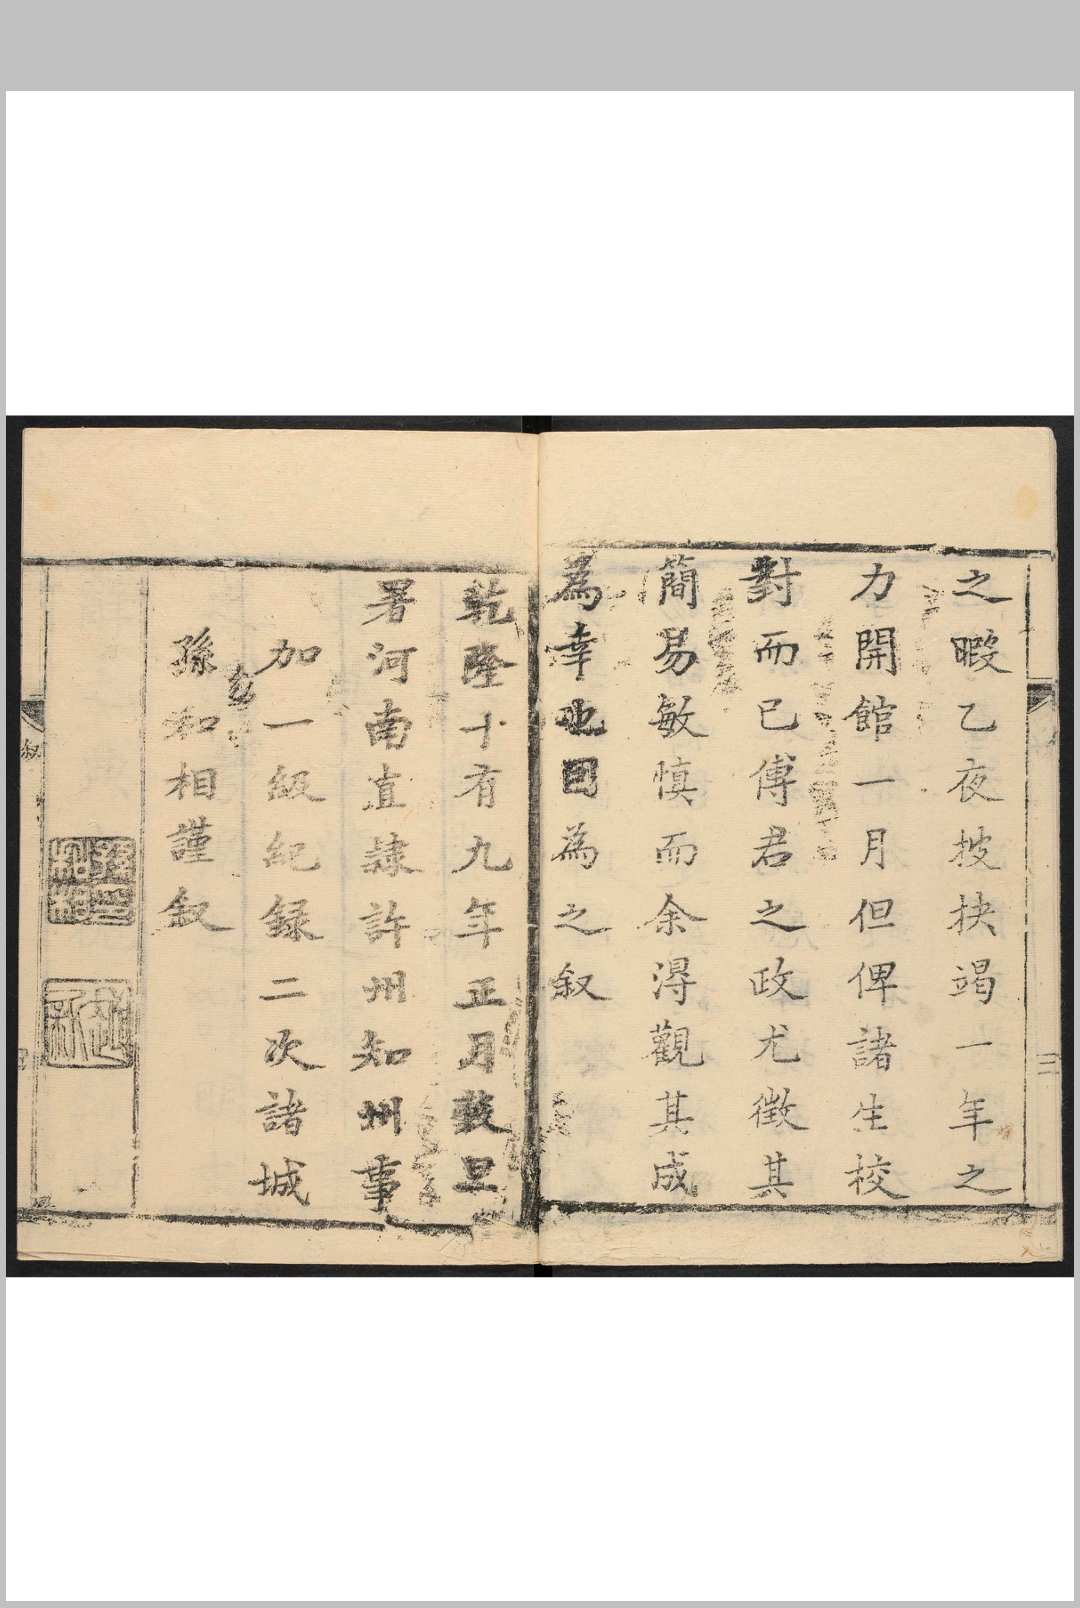 之暇乙夜披抉竭一年之
力開館一月但俾諸生校
對而已傅君之政尤徵其
簡易敏慎而余得觀其成
為幸也因為之叙
乾隆十有九年正月穀旦
署河南直隷許州知州事
加一級紀録二次諸城
孫和相謹叙
叙